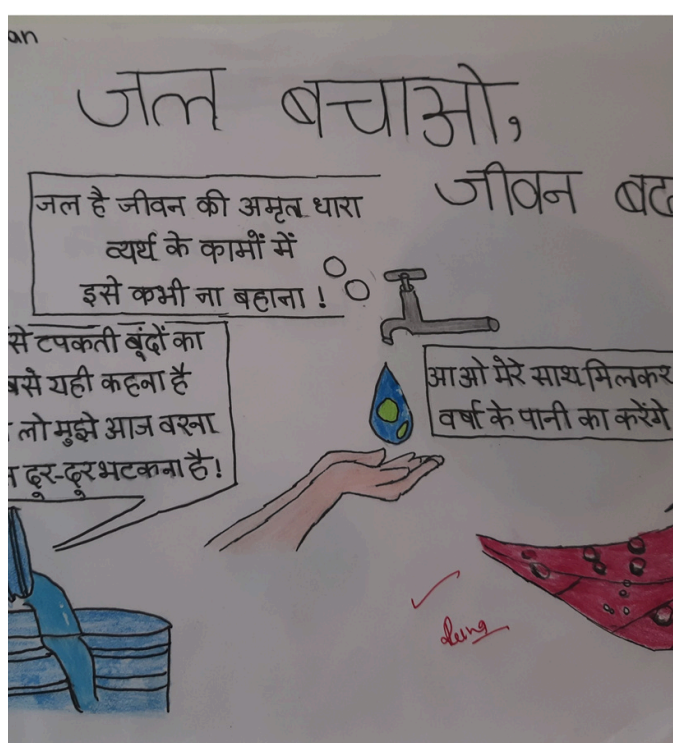 an
जल बचाओ,
जीवन
जल है जीवन की अमृत धारा
व्यर्थ के कामों में
इसे कभी ना बहाना !
से टपकती बूंदों का
बसे यही कहना है
लो मुझे आज वरना
दूर-दूर भटकना है!
आओ मेरे साथ मिलकर
वर्षा के पानी का करेंगे